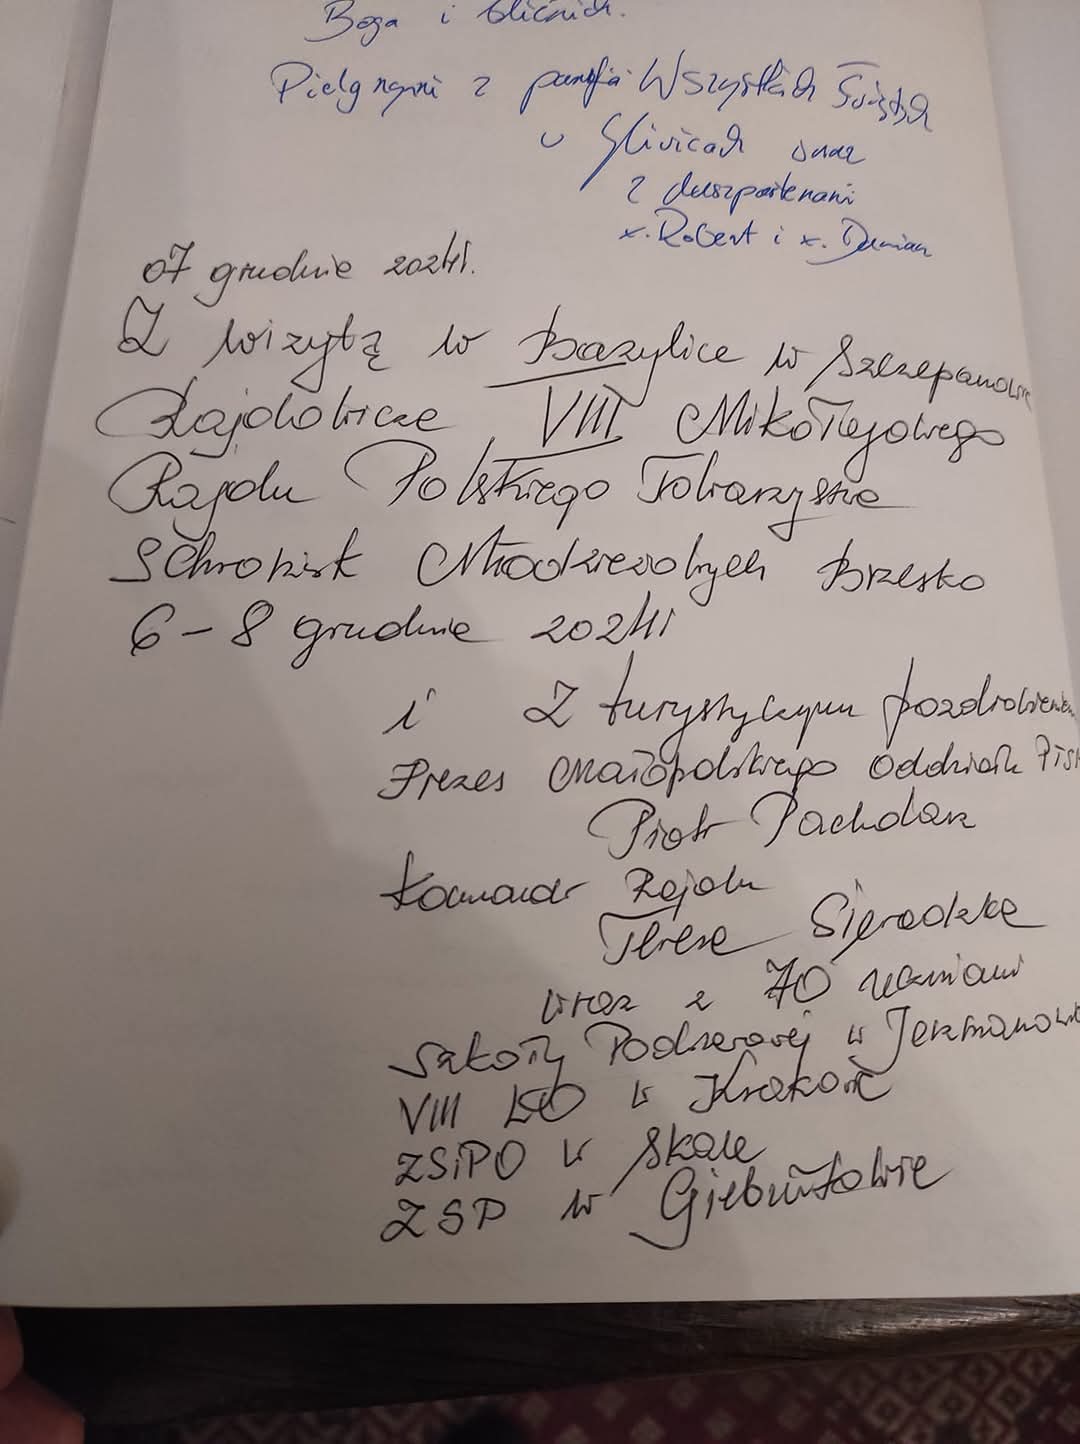 Boga i bliźnich.
Pielgrzymi z parafii Wszystkich Świętych
w Gliwicach wraz
z duszpasterzami
x. Robert i x. Damian
07 grudnia 2024r.
Z wizytą w Bazylice w Szczepanowie
Rajdowicze VIII Mikołajowego
Rajdu Polskiego Towarzystwa
Schronisk Młodzieżowych Brzesko
6-8 grudnia 2024r
i z turystycznym pozdrowieniem
Prezes Małopolskiego Oddziału PTSM
Piotr Pacholarz
Komandor Rajdu
Teresa Sieradzka
wraz z 70 uczniami
Szkoły Podstawowej w Jerzmanowicach
VIII LO w Krakowie
ZSiPO w Skale
ZSP w Giebułtowie